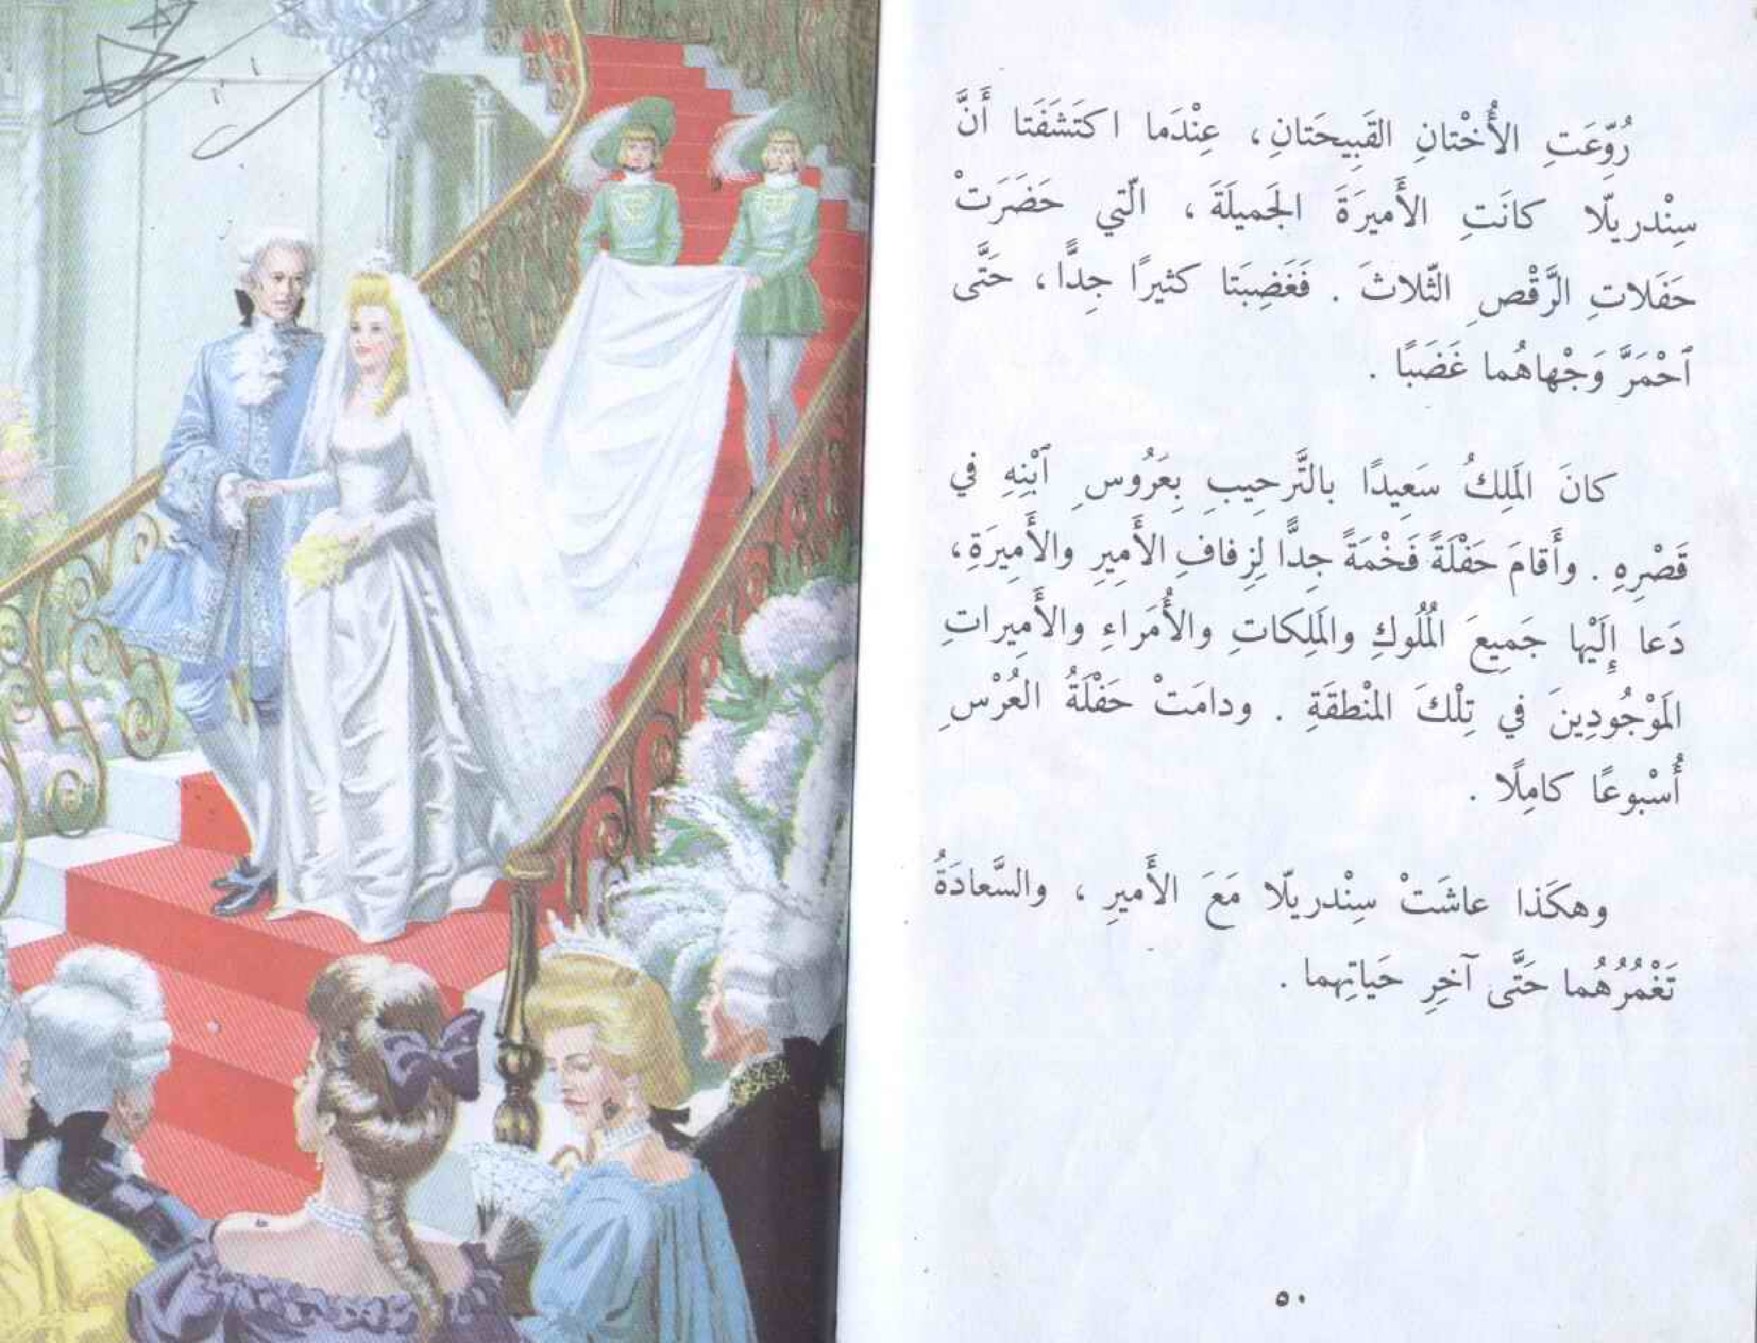 رُوِّعَتِ الأُخْتانِ القَبِيحَتانِ، عِنْدَما اكتَشَفَتا أَنَّ
سِنْدريلّا كانَتِ الأَميرَةَ الجَميلَةَ، الّتي حَضَرَتْ
حَفَلاتِ الرَّقْصِ الثّلاثَ. فَغَضِبَتا كثيرًا جِدًّا، حَتَّى
ٱحْمَرَّ وَجْهاهُما غَضَبًا.
كانَ المَلِكُ سَعِيدًا بالتَّرحِيبِ بِعَرُوسِ ٱبْنِهِ في
قَصْرِهِ. وأَقامَ حَفْلَةً فَخْمَةً جِدًّا لِزِفافِ الأَمِيرِ والأَمِيرَةِ،
دَعا إِلَيْها جَمِيعَ المُلُوكِ والمَلِكاتِ والأُمَراءِ والأَمِيراتِ
المَوْجُودِينَ في تِلْكَ المنْطقَةِ. ودامَتْ حَفْلَةُ العُرْسِ
أُسْبوعًا كامِلًا.
وهكَذا عاشَتْ سِنْدريلّا مَعَ الأَميرِ، والسَّعادَةُ
تَغْمُرُهُما حَتَّى آخِرِ حَياتِهِما.
٥٠